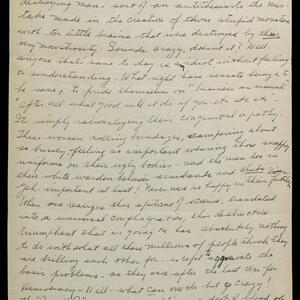 destroying man - sort of an antithesis to the mis-
take made in the creation of those stupid monsters
with too little brains that were destroyed by their
very monstrosity. Sounds crazy, doesn't it? Well -
anyone thats sane to-day is an idiot without feeling
or understanding. What right have
be sane, to pride themselves on "business as usual"
"after all what good will it do if you etc etc etc".
Is simply rationalizing their congenital apathy.
These women rolling bandages, scampering about
so busily, feeling so important wearing those snappy
uniforms on their ugly bodies - and the men too in
their white warden helmets armbands and clubs
important at last! Never were so happy in their
When one realizes this of science, translated
into a universal conflagration, this destruction
triumphant that is going on has absolutely nothing
to do with what all these millions of people think they
are killing each other for - except to aggravate the
basic problems - as they one after the last War for
Democracy - Well - what can one do but go crazy!